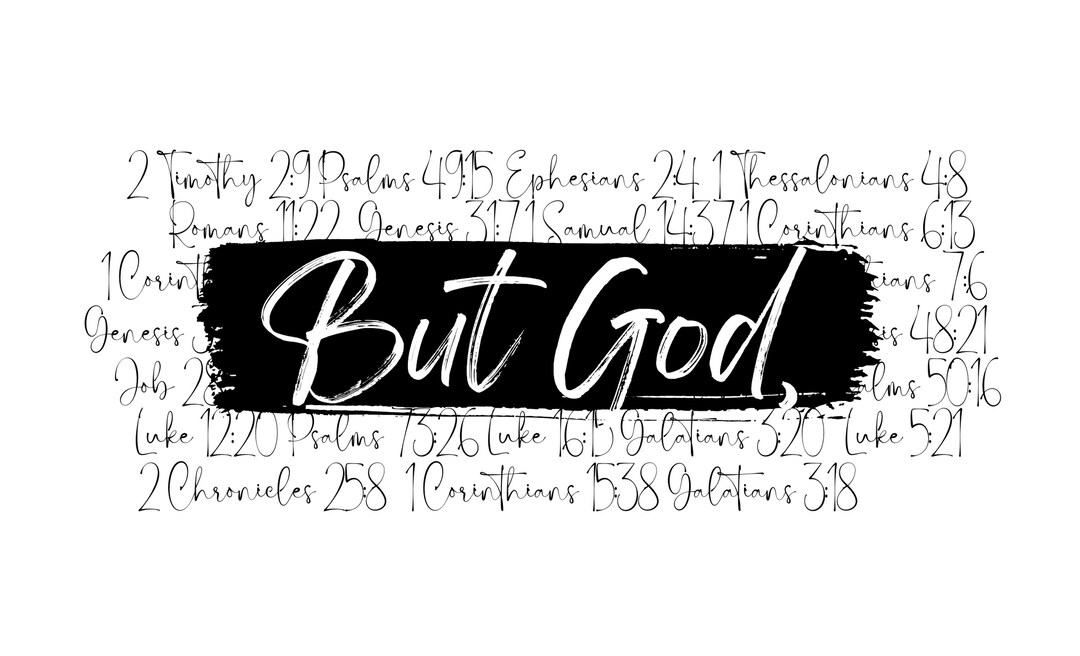 2 Timothy 2:9 Psalms 49:15 Ephesians 2:4 1 Thessalonians 4:8
Romans 11:22 Genesis 31:7 1 Samual 14:37 1 Corinthians 6:13
1 Corint 7:6
Genesis 48:21
Job 50:16
But God,
Luke 12:20 Psalms 73:26 Luke 16:15 Galatians 3:20 Luke 5:21
2 Chronicles 25:8 1 Corinthians 15:38 Galatians 3:18